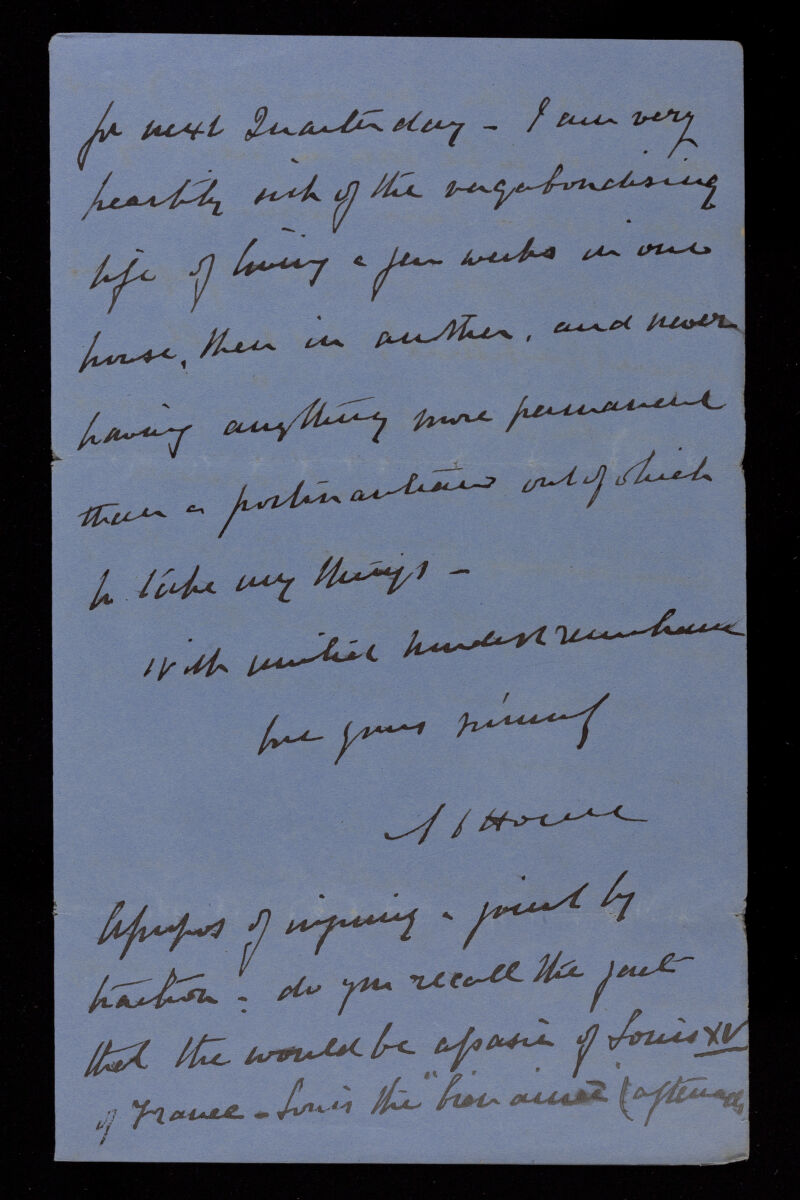 for next Quarter day - I am very
heartily sick of the vagabondising
life of living a few weeks in one
house, then in another, and never
having anything more permanent
than a portmanteau out of which
to take my things -
With united kindest remembrance
yours sincerely
Apropos of injuring a joint by
traction: do you recall the fact
that the would be assassin of Louis XV
of France - Louis the "bien aimée" (afterwards